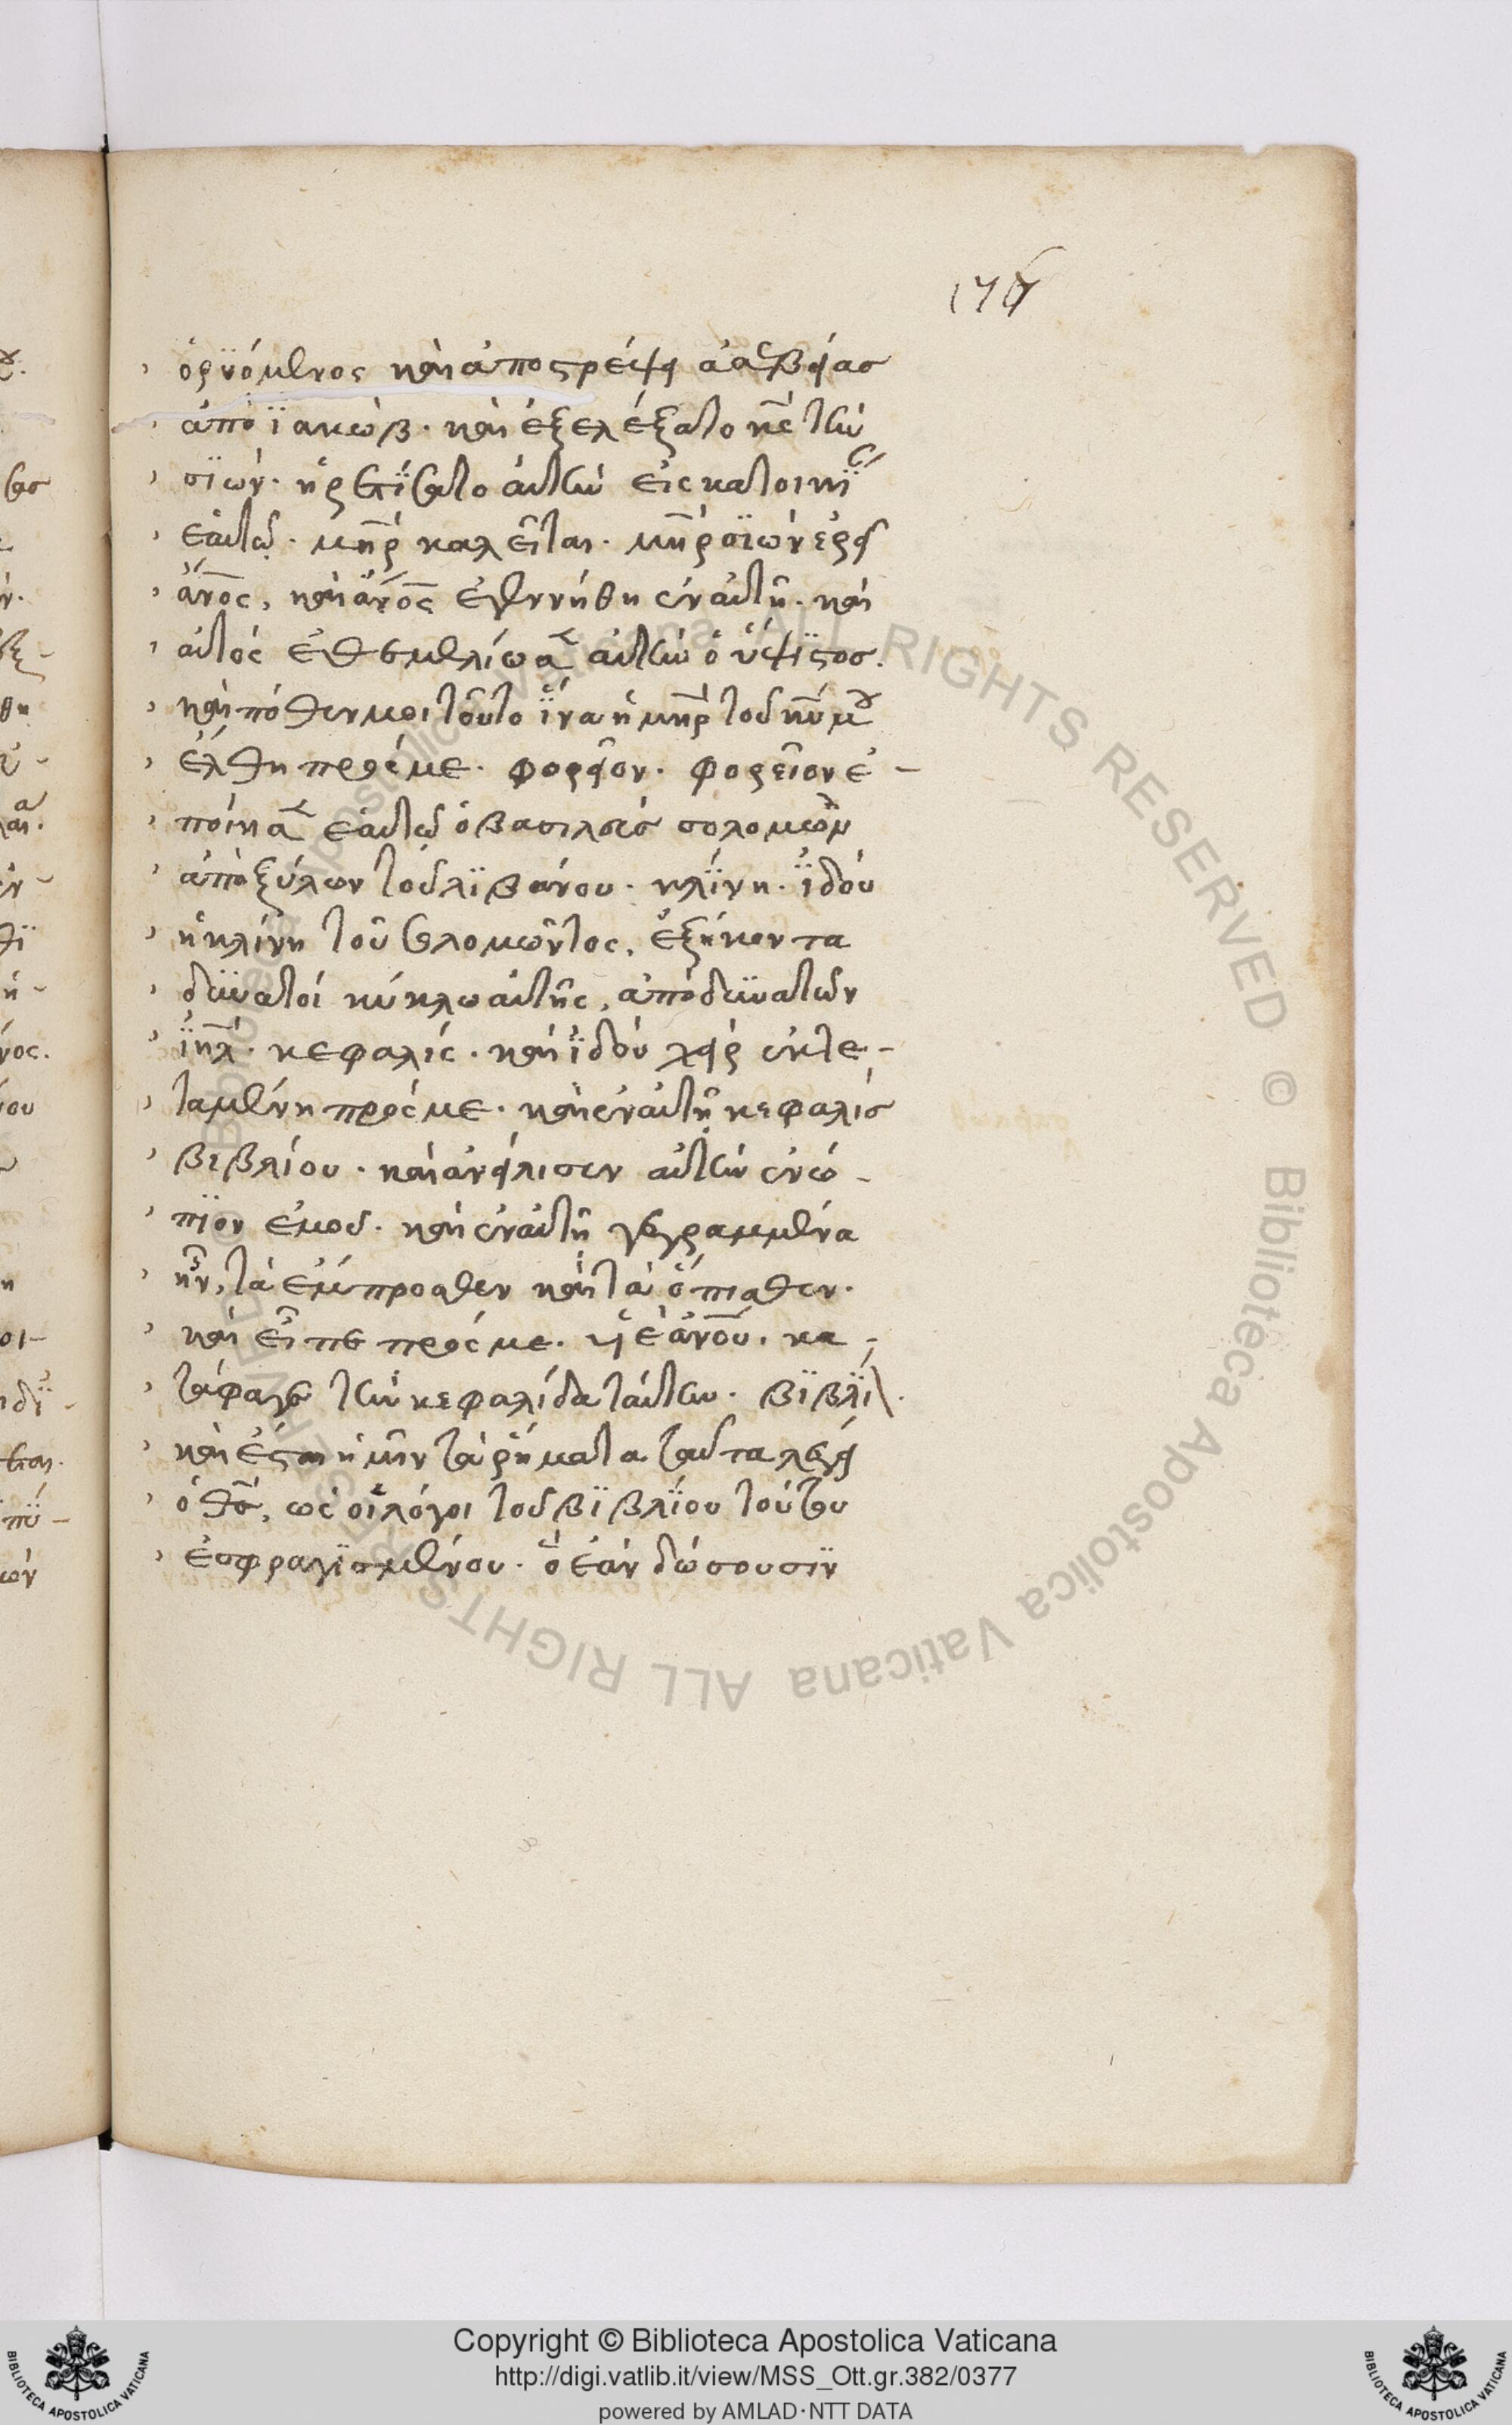 174
ὁρϋόμενος καὶ ἀποστρέψει ἀσεβείας
ἀπὸ ϊακώβ. καὶ ἐξελέξατο κς τὴν
σϊών. ᾑρετΐσατο αὐτὴν εἰς κατοικΐ
ἑαυτῷ. μηρ καλεῖται. μηρ σϊὼν ἐρεῖ
ἄνος, καὶ ἄνος ἐγεννήθη ἐν αὐτῇ. καὶ
αὐτὸς ἐθεμελίωσεν αὐτὴν ὁ ὕψϊστος.
καὶ πόθεν μοι τοῦτο ἵνα ἡ μηρ τοῦ κυ μου
ἔλθη πρός με. φορεῖον. φορεῖον ἐ-
ποίησεν ἑαυτῷ ὁ βασιλεὺς σολομὼν
ἀπὸ ξύλων τοῦ λϊβάνου. κλΐνη. ϊδοὺ
ἡ κλίνη τοῦ σολομῶντος, ἑξήκοντα
δυνατοὶ κύκλω αὐτῆς, ἀπὸ δυνατῶν
ϊηλ. κεφαλίς. καὶ ϊδοὺ χεὶρ ἐκτε-
ταμένη πρός με. καὶ ἐν αὐτῇ κεφαλὶς
βιβλίου. καὶ ἀνείλισεν αὐτὴν ἐνώ-
πϊον ἐμοῦ. καὶ ἐν αὐτῇ γεγραμμένα
ἦν, τὰ ἔμπροσθεν καὶ τὰ ὄπισθεν.
καὶ εἶπε πρός με. υἱὲ ἀνου. κα-
τάφαγε τὴν κεφαλίδα ταύτην. βϊβλΐ
καὶ ἔσται ἡμῖν τὰ ῥήματα ταῦτα λέγει
ὁ θς, ὡς οἱ λόγοι τοῦ βϊβλΐου τούτου
ἐσφραγϊσμένου. ὃ ἐὰν δώσουσϊν
Copyright © Biblioteca Apostolica Vaticana
http://digi.vatlib.it/view/MSS_Ott.gr.382/0377
powered by AMLAD·NTT DATA